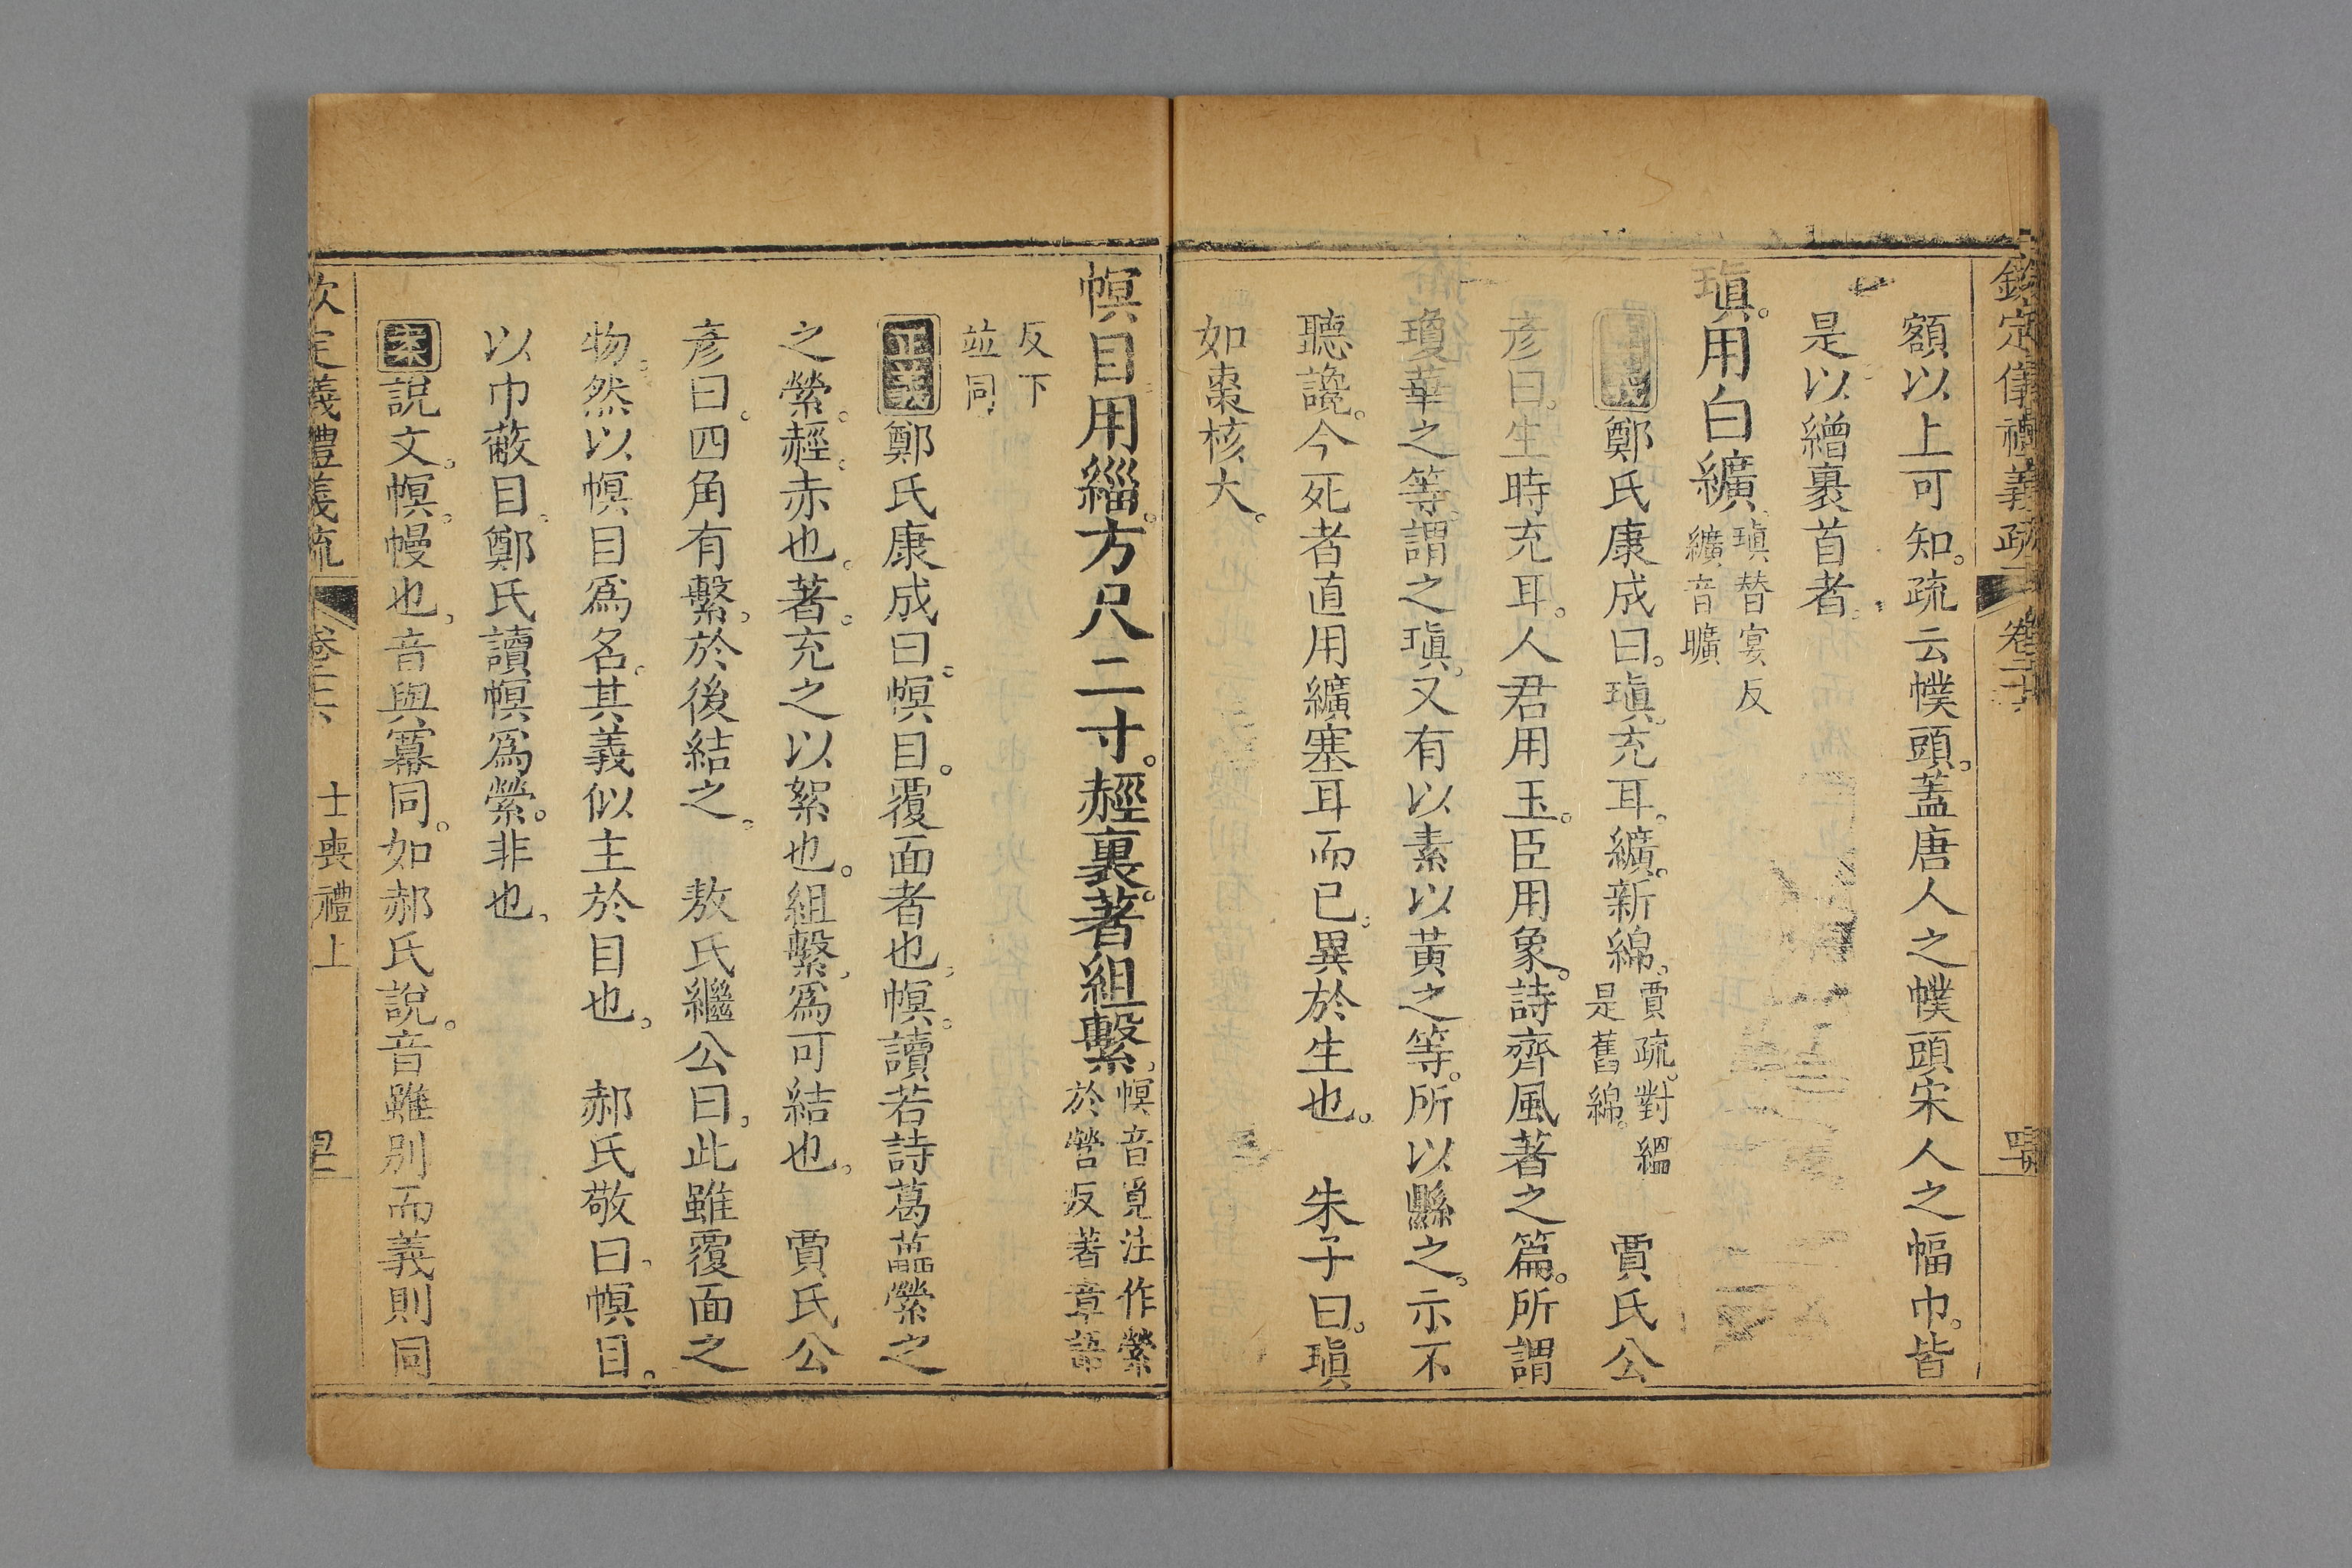 欽定儀禮義疏 卷二十六
額以上可知。疏云幞頭。蓋唐人之幞頭宋人之幅巾。皆
是以繒裹首者。
瑱。用白纊。瑱替宴反
纊音曠
鄭氏康成曰。瑱。充耳。纊。新綿。賈疏。對縕
是舊綿。 賈氏公
彥曰。生時充耳。人君用玉。臣用象。詩齊風著之篇。所謂
瓊華之等。謂之瑱。又有以素以黃之等。所以縣之。示不
聽讒。今死者直用纊塞耳而已。異於生也。 朱子曰。瑱
如棗核大。
幎目用緇。方尺二寸。䞓裏。著。組繫。幎音覓注作縈
於營反著章語
反下
並同
正義鄭氏康成曰。幎目。覆面者也。幎。讀若詩葛藟縈之
之縈。䞓。赤也。著。充之以絮也。組繫。爲可結也。 賈氏公
彥曰。四角有繫。於後結之。 敖氏繼公曰。此雖覆面之
物。然以幎目爲名。其義似主於目也。 郝氏敬曰。幎目。
以巾蔽目。鄭氏讀幎爲縈。非也。
案說文。幎。幔也。音與冪同。如郝氏說。音雖別而義則同
欽定義禮義疏 卷二十六 士喪禮上